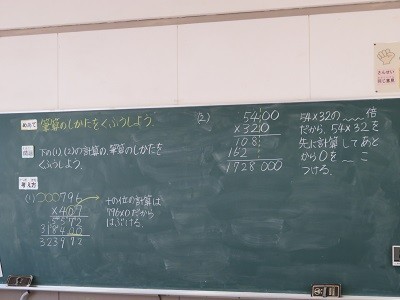 めあて
筆算のしかたをくふうしよう。
問題
下の(1),(2)の計算の、筆算のしかたを
くふうしよう。
考え方
(1) 796
×409
3184
(2) 5400
×320
108
162
1728000
十の位の計算は
796×0だから
はぶける。
54×32の 倍
だから、54×32を
先に計算してあと
から0を こ
つける。